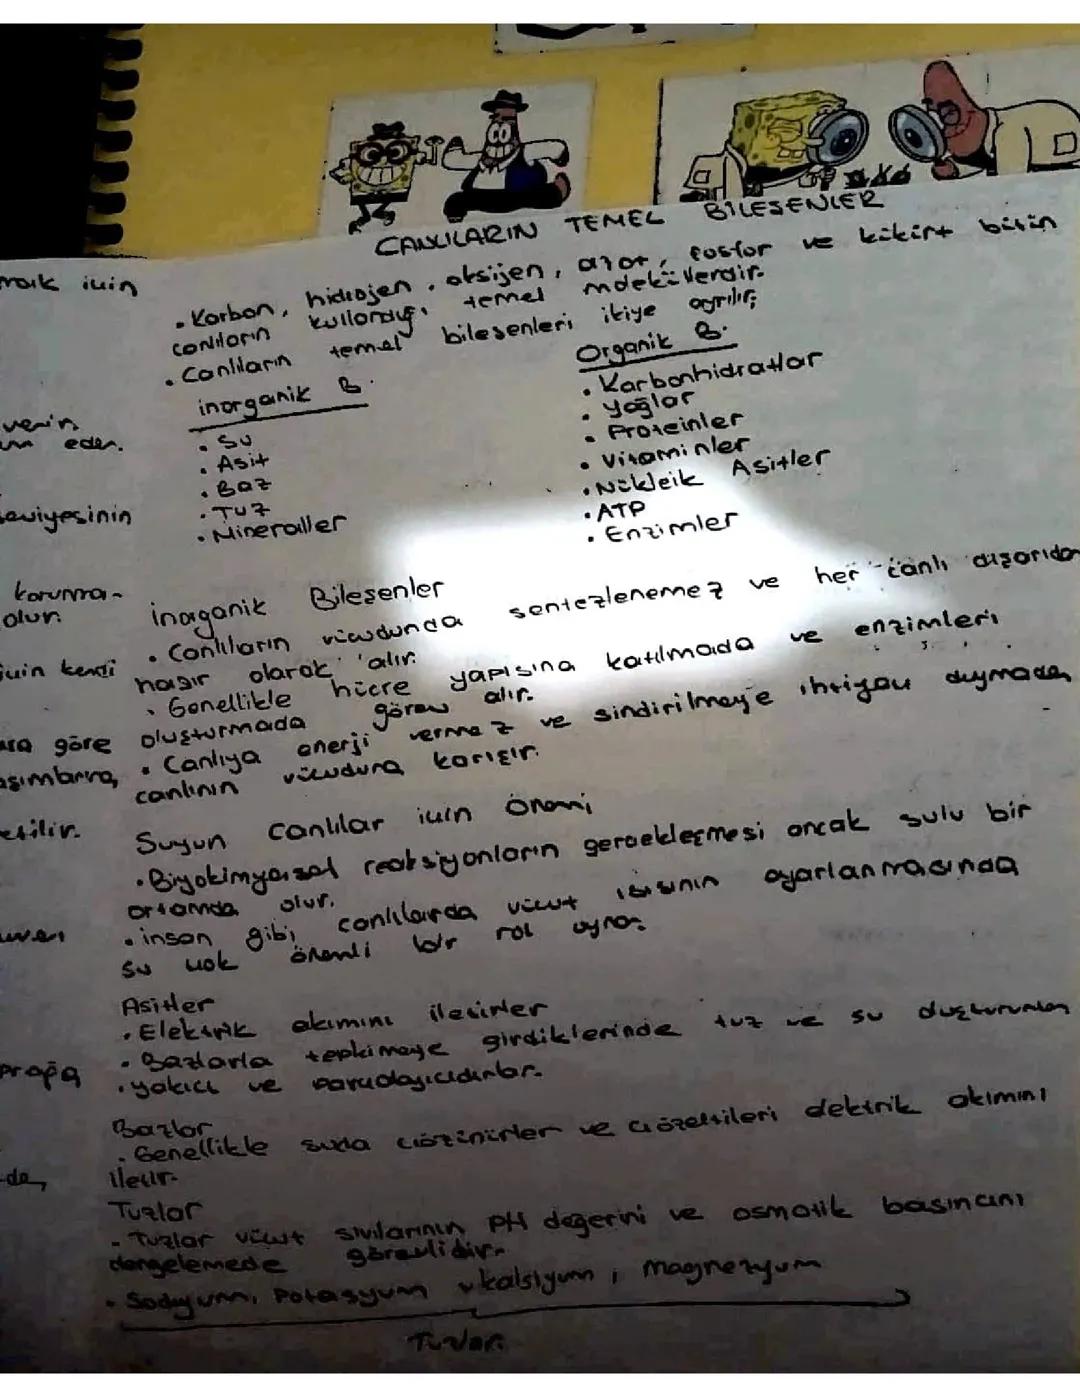 CANLILARIN TEMEL BİLEŞENLER
• Karbon, hidrojen, oksijen, azot, fosfor ve kükürt bütün
canlıların kullandığı temel moleküllerdir.
• Canlıların temel bileşenleri ikiye ayrılır;
inorganik B.
• Su
• Asit
• Baz
• Tuz
• Mineraller
Organik B.
• Karbonhidratlar
• Yağlar
• Proteinler
• Vitaminler
• Nükleik Asitler
• ATP
• Enzimler
inorganik Bileşenler
• Canlıların vücudunda sentezlenemez ve her canlı dışarıdan
hazır olarak alır.
• Genellikle hücre yapısına katılmada ve enzimleri
oluşturmada görev alır.
• Canlıya enerji vermez ve sindirilmeye ihtiyaç duymadan
canlının vücuduna karışır.
Suyun canlılar için önemi
• Biyokimyasal reaksiyonların gerçekleşmesi ancak sulu bir
ortamda olur.
• insan gibi canlılarda vücut ısısının ayarlanmasında
su çok önemli bir rol oynar.
Asitler
• Elektrik akımını iletirler
• Bazlarla tepkimeye girdiklerinde tuz ve su
• yakıcı ve
Bazlar
• Genellikle suda çözünürler ve çözeltileri elektrik akımını
iletir.
Tuzlar
• Tuzlar vücut sıvılarının pH değerini ve osmotik basıncını
dengelemede görevlidir.
• Sodyum, Potasyum, kalsiyum, magnezyum
Tuzlar
için
eder.
seviyesinin
korunma-
olur.
için kendi
göre
-de,